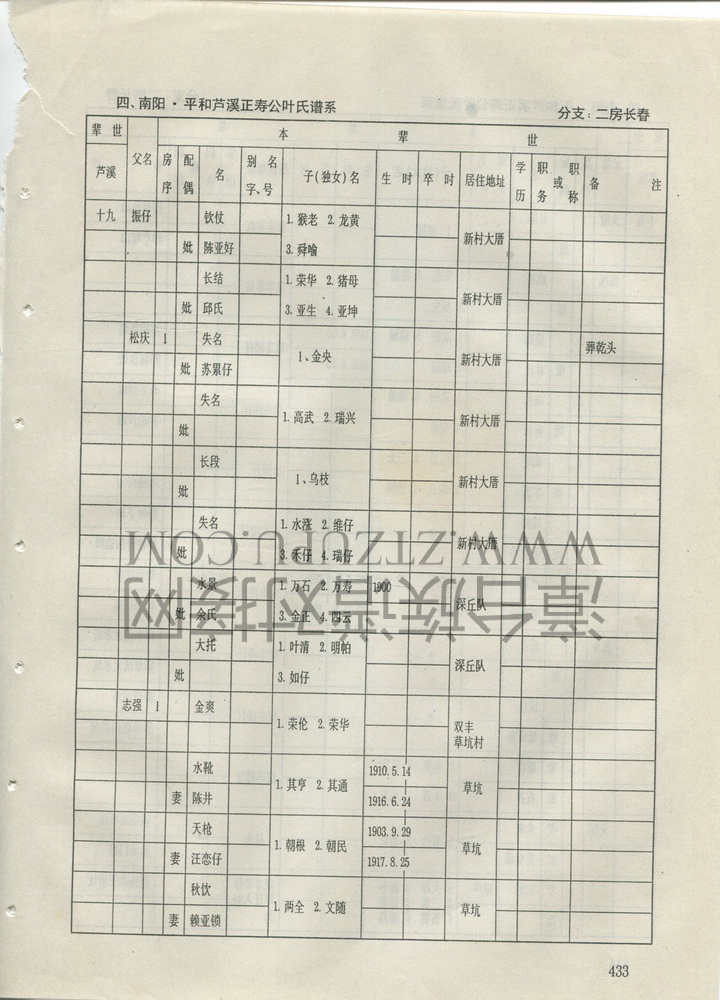 四、南阳·平和芦溪正寿公叶氏谱系 分支：二房长春
辈世 父名 本辈世
芦溪 房序 配偶 名 别名字、号 子(独女)名 生时 卒时 居住地址 学历 职务或职称 备注
十九 振仔 钦仗 1.猴老 2.龙黄 新村大厝
妣 陈亚好 3.舜喻
长结 1.荣华 2.猪母 新村大厝
妣 邱氏 3.亚生 4.亚坤
松庆 1 失名 1、金央 新村大厝 葬乾头
妣 苏累仔
失名 1.高武 2.瑞兴 新村大厝
妣
长段 1、乌枝 新村大厝
妣
失名 1.水涨 2.维仔 新村大厝
妣 3.禾仔 4.瑞仔
水景 1.万石 2.万寿 1900 深丘队
妣 余氏 3.金正 4.四云
大托 1.叶清 2.明帕 深丘队
妣 3.如仔
志强 1 金爽 1.荣伦 2.荣华 双丰草坑村
水靴 1.其亨 2.其通 1910.5.14 草坑
妻 陈井 1916.6.24
天枪 1.朝根 2.朝民 1903.9.29 草坑
妻 汪恋仔 1917.8.25
秋饮 1.两全 2.文随 草坑
妻 赖亚锁
433
WWW.ZTZUPU.COM
漳台族谱对接网